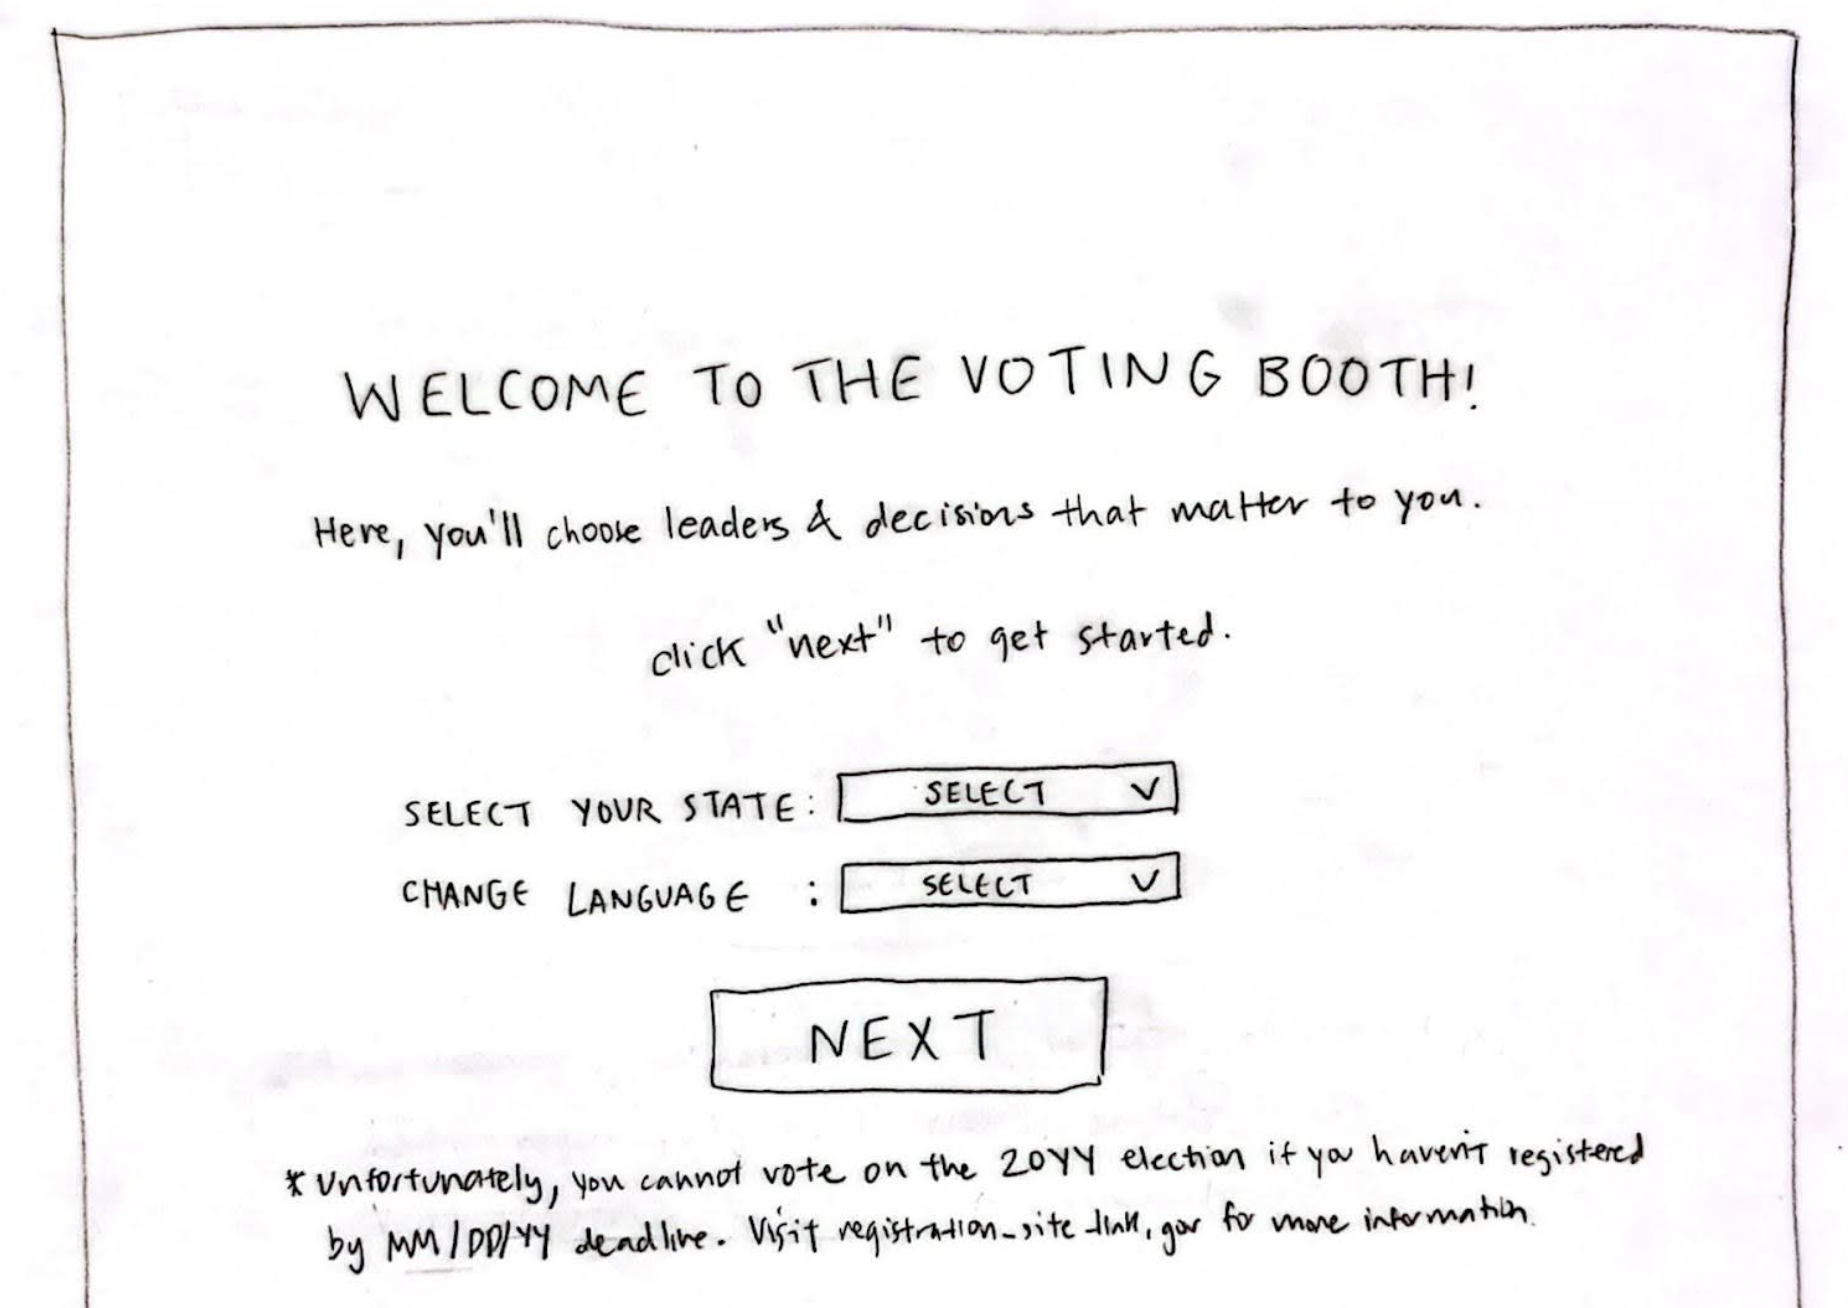 WELCOME TO THE VOTING BOOTH!
Here, you'll choose leaders & decisions that matter to you.
click "next" to get started.
SELECT YOUR STATE: SELECT
CHANGE LANGUAGE : SELECT
NEXT
* Unfortunately, you cannot vote on the 20YY election if you haven't registered
by MM/DD/YY deadline. Visit registration-site-link.gov for more information.